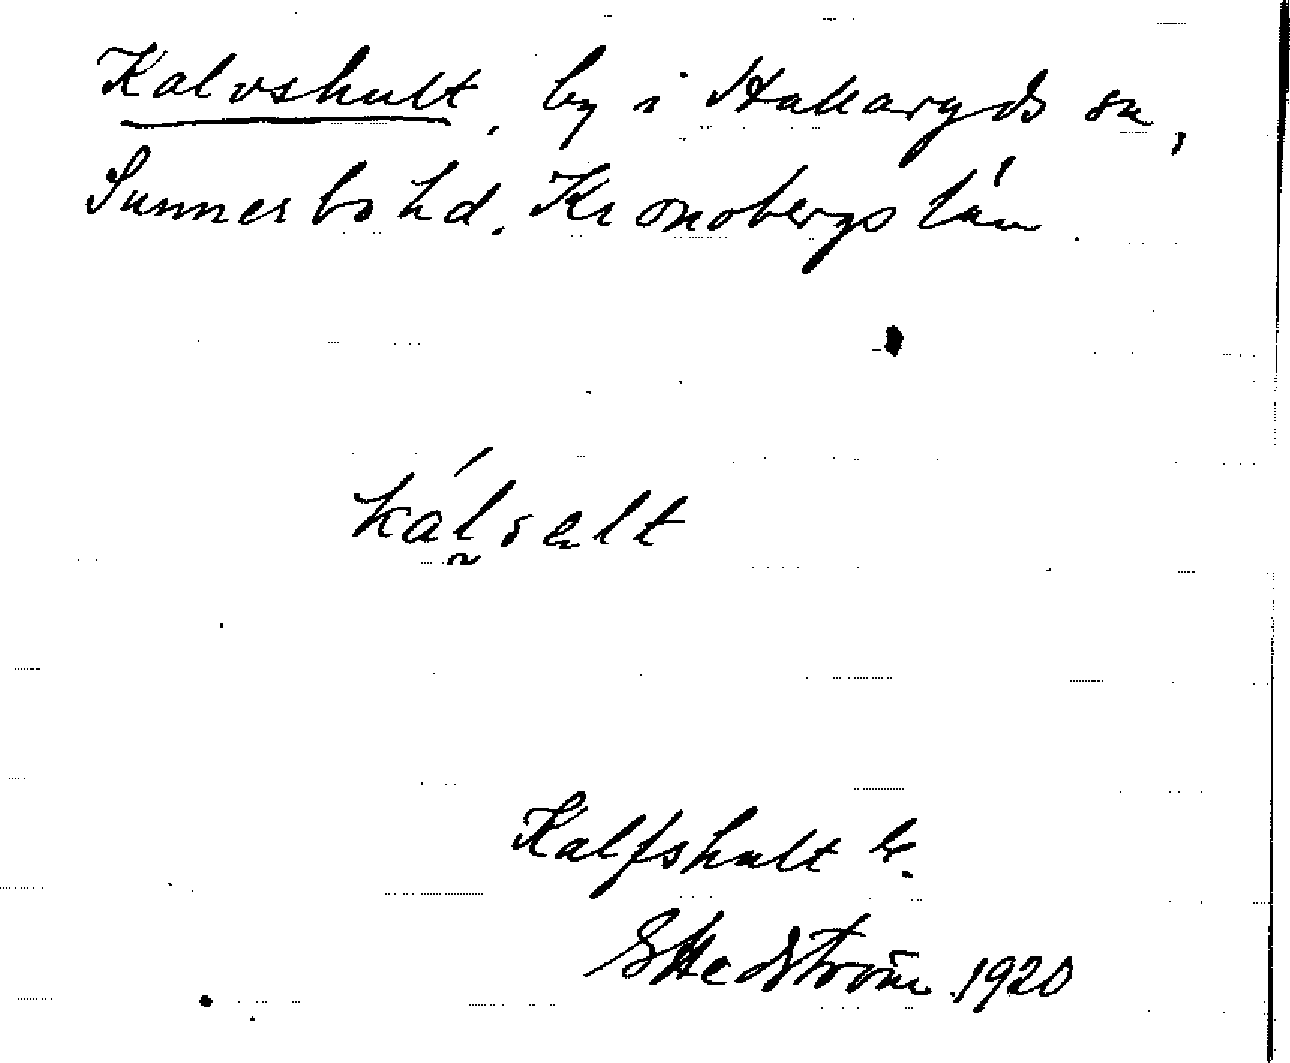 Kalvshult, by i Hallaryds sn,
Sunnerbo hd. Kronobergs län.
kálsalt
Kalfshult
GHedström 1920